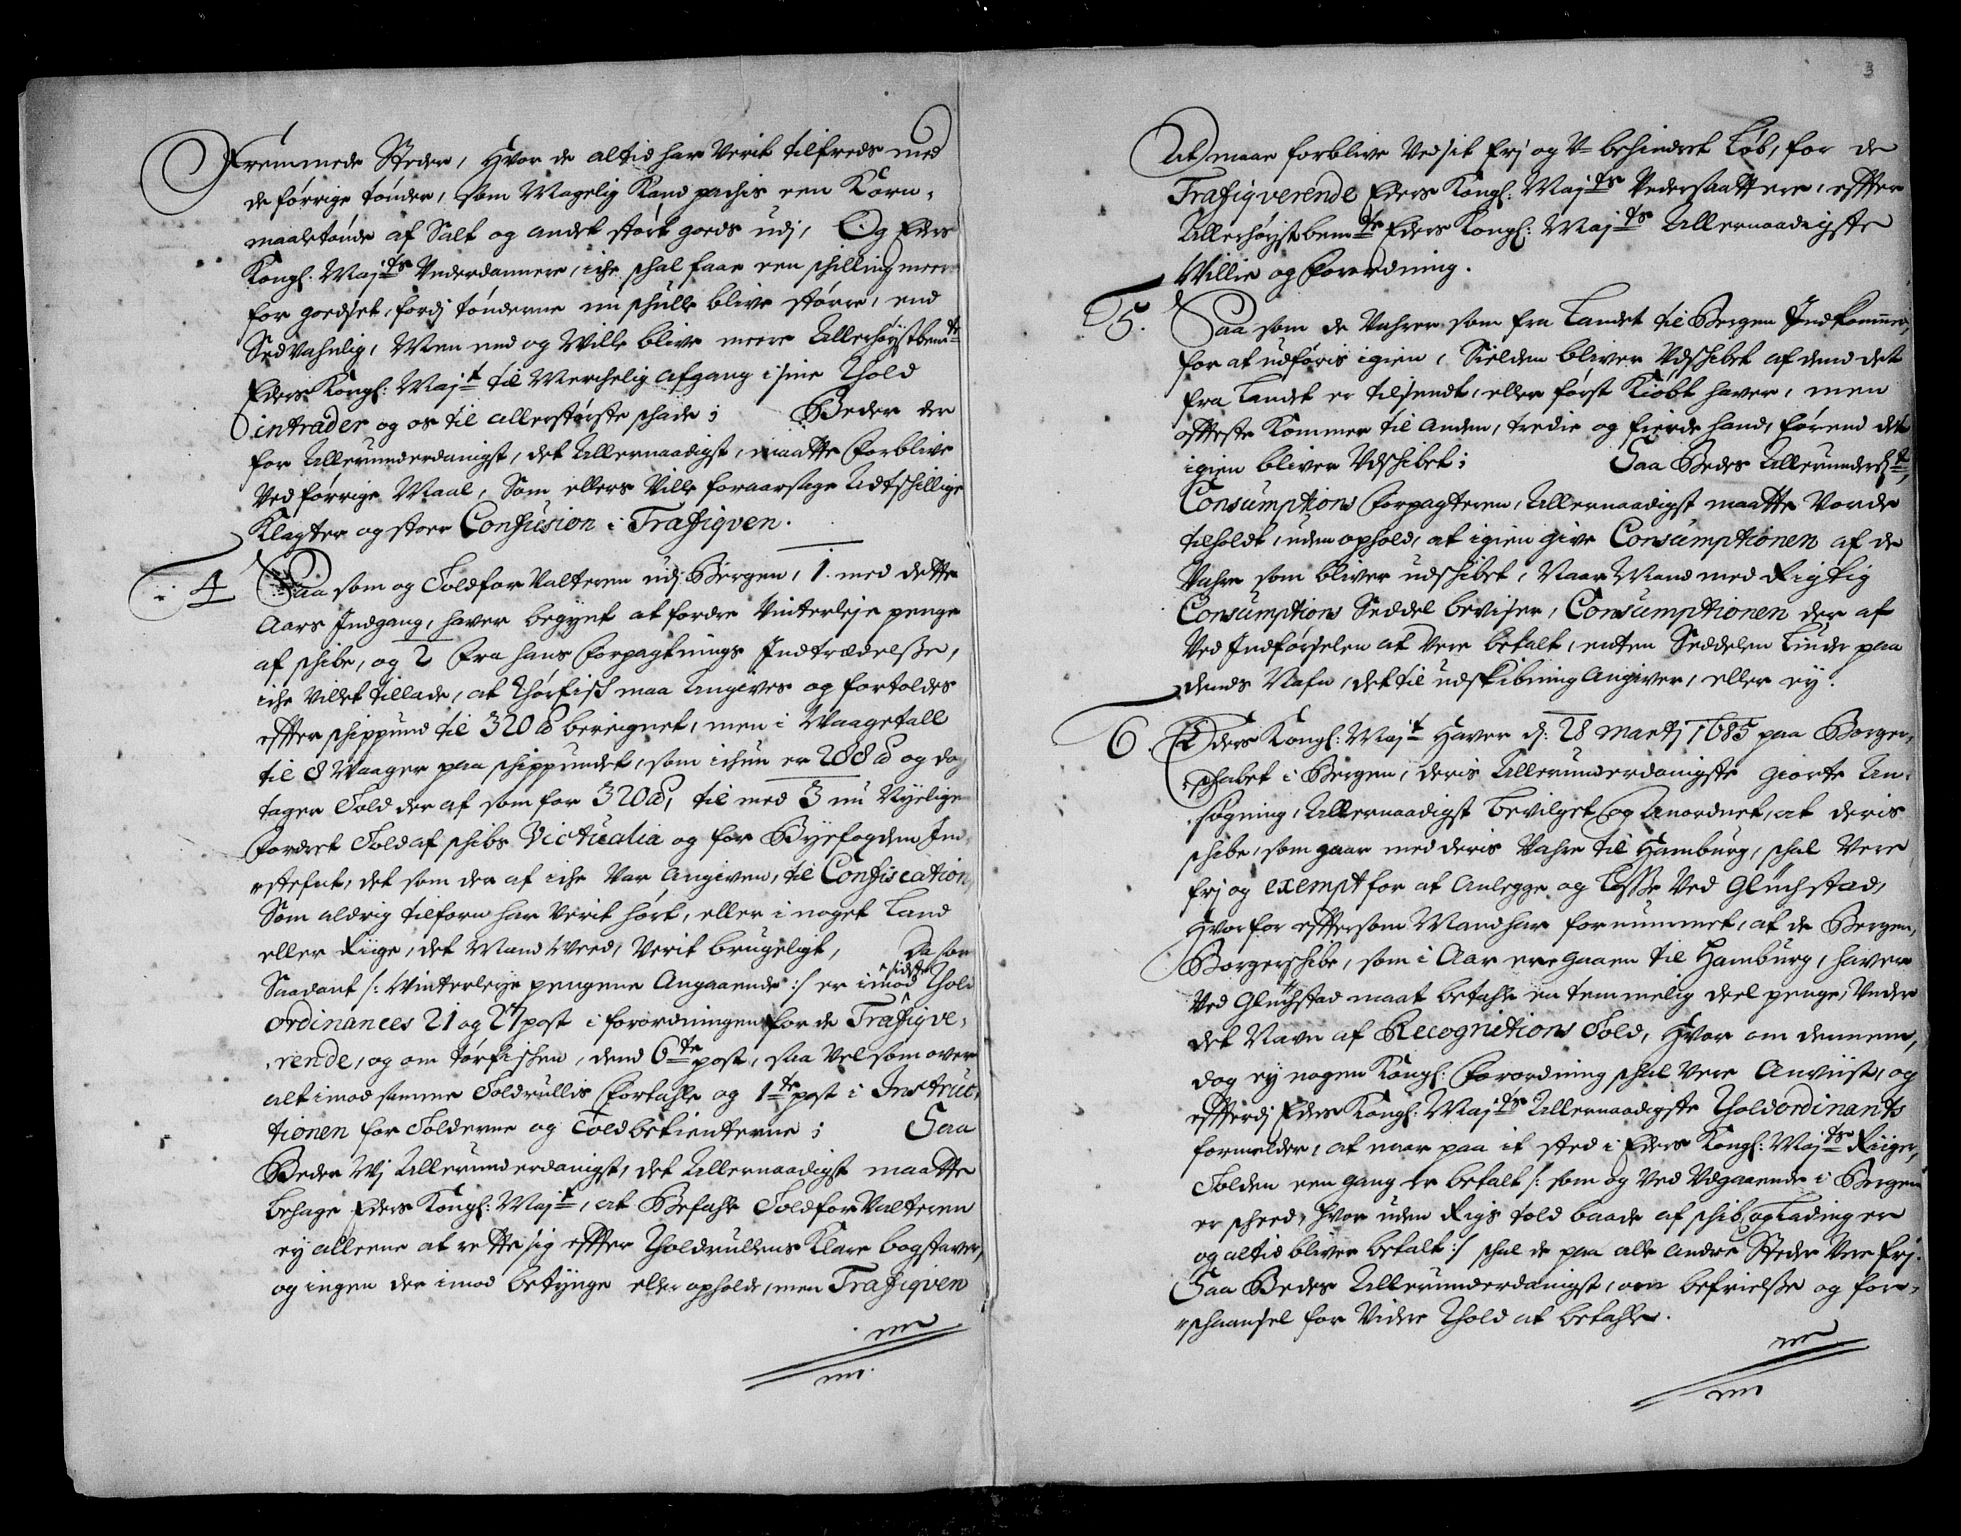 Fremmede Steder, Hvor de altid har Verit tilfreds med
de förrige tönder, som Magelig Kand pachis een Korn-
maaletönde af Salt og andet stört goeds udj, Og Eders
Kongl: Maj:ts Vnderdannere, iche schal faae een schilling meer
for goedset, fordj tönderne nu schulle blive större, end
Sedvahnlig, Men end og Ville blive meere Allerhöystbem:te
Eders Kongl: Maj:t til Merchelig afgang i sine Thold
intrader og os til allerstörste schade; Beder der
for Allerunderdanigst, det Allernaadigst, maatte forblive
Ved förrige Maal, Som ellers Ville foraarsage Udtschillige
Klagter og stoer Confusion i Trafiqven.
4 Saa som og Toldforvalteren udj Bergen, 1. med dette
Aars Indgang, haver begynt at fordre Vinterleje penge
af schibe, og 2 fra hans forpagtnings Indtrædelsse,
iche Villet tillade, at Thörfisch maa Angives og fortoldes
effter schippund til 320 ℔ bereignet, men i Vaagetall
til 8 Vaager paa schippundet, som ichun er 288 ℔ og dog
tager Told der af som for 320 ℔, til med 3 nu Nyelige
fordret Told af schibs Victualia og for Byefogden Ind-
stefnt, det som der af iche Var Angiven, til Confiscation,
Som aldrig tilforn har Verit hört, eller i noget Land
eller Riige, det Mand Veed, Verit brugeligt, Da som
Saadant /: Vinterleye pengene Angaaende :/ er imod sidste Thold
ordinances 21 og 27 post i forordningen for de Trafiqve-
rende, og om törfischen, dend 6te post, saa Vel som over
alt imod samme Toldrullis fortahle og 1te post i Instruc-
tionen for Tolderne og Toldbetienterne; Saa
Beder Vj Allerunderdanigst, det Allernaadigst maatte
behage Eders Kongl: Maj:t, at Befahle Toldforvalteren
ey alleene at rette sig effter Tholdrullens Klare bogstaver,
og ingen der imod betynge eller opholde, men Trafiqven
3
At maae forblive Ved sit frj og V-behindret Löb, for de
Trafiqverende Eders Kongl: Maj:ts Vndersaattere, effter
Allerhöystbem:te Eders Kongl: Maj:ts Allernaadigste
Villie og forordning.
5. Saa som de Vahrer som fra Landet til Bergen Indkommer,
for at udföris igien, Sielden bliver Udschibet af dend det
fra Landet er tilsendt, eller först Kiöbt haver, men
offteste Kommer til Anden, tredie og fierde hand, förend det
igien bliver Vdschibet; Saa Bedes Allerunderd:t,
Consumptions forpagteren, Allernaadigst maatte Vorde
tilholdt, uden ophold, at igien give Consumptionen af de
Vahre som bliver udschibet, Naar Mand med Rigtig
Consumptions Seddel beviser, Consumptionen der af
Ved Indförselen at Vere betalt, enten Seddelen Liuder paa
dends Nafn, det til udskibning Angiver, eller ey.
6. Eders Kongl: Maj:t Haver d: 28 Martj 1685 paa Borger-
schabet i Bergen, deris Allerunderdanigste giorte An-
sögning, Allernaadigst bevilget og Anordnet, at deris
schibe, som gaar med deris Vahre til Hamburg, schal Vere
frj og exempt for at Anlegge og Losse Ved Glüchstad,
Hvorfor effttersom Mand har fornummet, at de Bergen,
Borgerschibe, som i Aar ere gaaen til Hamburg, haver
Ved Glüchstad maat betahle en temmelig deel penge, Under
det Navn af Recognitions Told, Hvor om dennem,
dog ey nogen Kongl: forordning schal Vere Anviist, og
effterdj Eders Kongl: Maj:ts Allernaadigste Tholdordinants
formelder, at naar paa it sted i Eders Kongl: Maj:ts Riiger,
Tolden een gang er betalt /: som og Ved Udgaaende i Bergen
er scheed, Hvor uden Rigs told baade af schib og Lading er
og altid bliver betalt :/ schal de paa alle Andre Steder Vere frj.
Saa Bedes Allerunderdanigst, om befrielsse og for-
schaansel for Videre Thold at betahle.